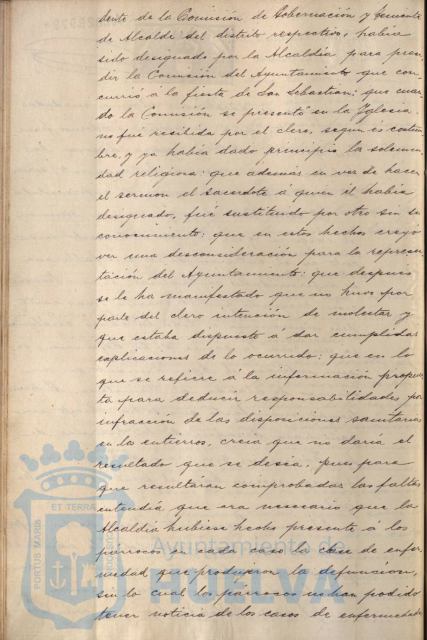 dente de la Comisión de Gobernación y Teniente
de Alcalde del distrito respectivo, habia
sido designado por la Alcaldia para presi-
dir la Comisión del Ayuntamiento que con-
currió á la fiesta de San Sebastian: que cuan-
do la Comisión se presentó en la Iglesia
no fué recibida por el clero, segun es costum-
bre, y ya habia dado principio la solemni-
dad religiosa: que además en vez de hacer
el sermon el sacerdote á quien él habia
designado, fué sustituido por otro sin su
conocimiento: que en estos hechos creyó
ver una desconsideración para la represen-
tación del Ayuntamiento: que despues
se le ha manifestado que no hubo por
parte del clero intención de molestar y
que estaba dispuesto á dar cumplidas
explicaciones de lo ocurrido: que en lo
que se refiere á la información propues-
ta para deducir responsabilidades por
infracción de las disposiciones sanitarias
en los entierros, creia que no daria el
resultado que se desea, pues para
que resultáran comprobadas las faltas
entendia que era necesario que la
Alcaldia hubiese hecho presente á los
párrocos en cada caso la clase de enfer-
medad que produjera la defuncion,
sin lo cual los parrocos no han podido
tener noticia de los casos de enfermedades
PORTUS MARIS
ET TERRÆ
CUSTODIA
Ayuntamiento de
HUELVA